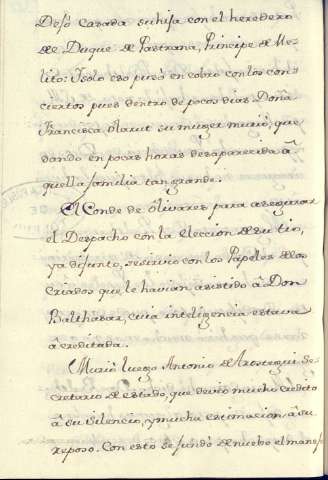 Dexó casada su hija con el heredero
de Duque de Pastrana, Principe de Me-
lito: I solo eso puso en cobro con los con-
ciertos pues dentro de pocos dias Doña
Francisca Clarut su muger murió, que
dando en pocas horas desaparecida â
quella familia tan grande.
El Conde de Olivares para asegurar
el Despacho con la eleccion de su tio,
ya difunto, se sirvio con los Papeles de los
criados que le havian asistido â Don
Balthasar, cuia inteligencia estava
âcreditada.
Murió luego Antonio de Arostegui Se-
cretario de estado, que devio mucho credito
â su silencio, y mucha estimacion â su
reposo. Con esto se fundó de nuebo el manejo